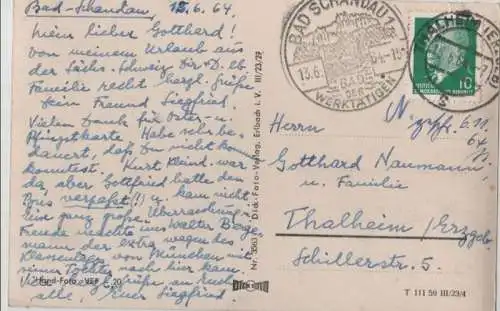 Bad-Schandau, 13.6.64
Mein lieber Gotthard!
Von meinem Urlaub aus
der Sächs. Schweiz Dir u. lb.
Familie recht herzl. Grüße
Dein Freund Siegfried.
Vielen Dank für Oster- u.
Pfingstkarte. Habe sehr be-
dauert, daß Du nicht kommen
konntest. Kurt Kleind. war
da, aber Gottfried hatte den
Bus verpaßt (!) u. kam nicht.
Eine ganz große Überraschung u.
Freude machte uns Walter Berg-
mann der extra wegen des
Klassentags von München mit
seiner Tochter nach hier kam.
Viele Grüße an Euch
alle, Euer Siegfried
Hand-Foto VEB E 20
Nr. 3563 Dick-Foto-Verlag, Erlbach i. V. III/23/29
DICK FOTO
BAD SCHANDAU 1
13.6. 64-18
BAD DER
WERKTÄTIGEN
THALHEIM (ERZGEB)
10
Herrn
Gotthard Naumann
u. Familie
Thalheim/Erzgeb.
Schillerstr. 5.
T 111 59 III/23/4